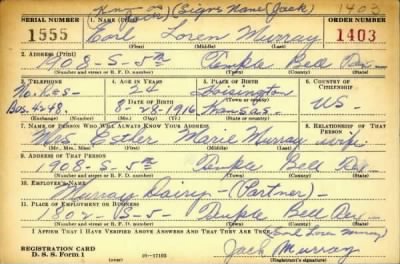 Known as (Signs Name (Jack) 1403
SERIAL NUMBER 1. NAME (Print) ORDER NUMBER
1555 Earl Loren Murray 1403
(First) (Middle) (Last)
2. ADDRESS (Print)
1908-S-5th Temple Bell Tex.
(Number and street or R. F. D. number) (Town) (County) (State)
3. TELEPHONE 4. AGE IN YEARS 5. PLACE OF BIRTH 6. COUNTRY OF CITIZENSHIP
24 Hoisington
DATE OF BIRTH
Bus. 4248. 8-28-1916 Kansas. US-
(Exchange) (Number) (Mo.) (Day) (Yr.) (State or country)
7. NAME OF PERSON WHO WILL ALWAYS KNOW YOUR ADDRESS 8. RELATIONSHIP OF THAT PERSON
Mrs. Esther Marie Murray wife
(Mr., Mrs., Miss) (First) (Middle) (Last)
9. ADDRESS OF THAT PERSON
1908-S-5th Temple Bell Tex-
(Number and street or R. F. D. number) (Town) (County) (State)
10. EMPLOYER'S NAME
Murray Dairy-(Partner)-
11. PLACE OF EMPLOYMENT OR BUSINESS
1802-S-5- Temple Bell Tex-
(Number and street or R. F. D. number) (Town) (County) (State)
I AFFIRM THAT I HAVE VERIFIED ABOVE ANSWERS AND THAT THEY ARE TRUE.
(Earl Loren Murray)
REGISTRATION CARD
D. S. S. Form 1 16-17105 Jack Murray
(over)